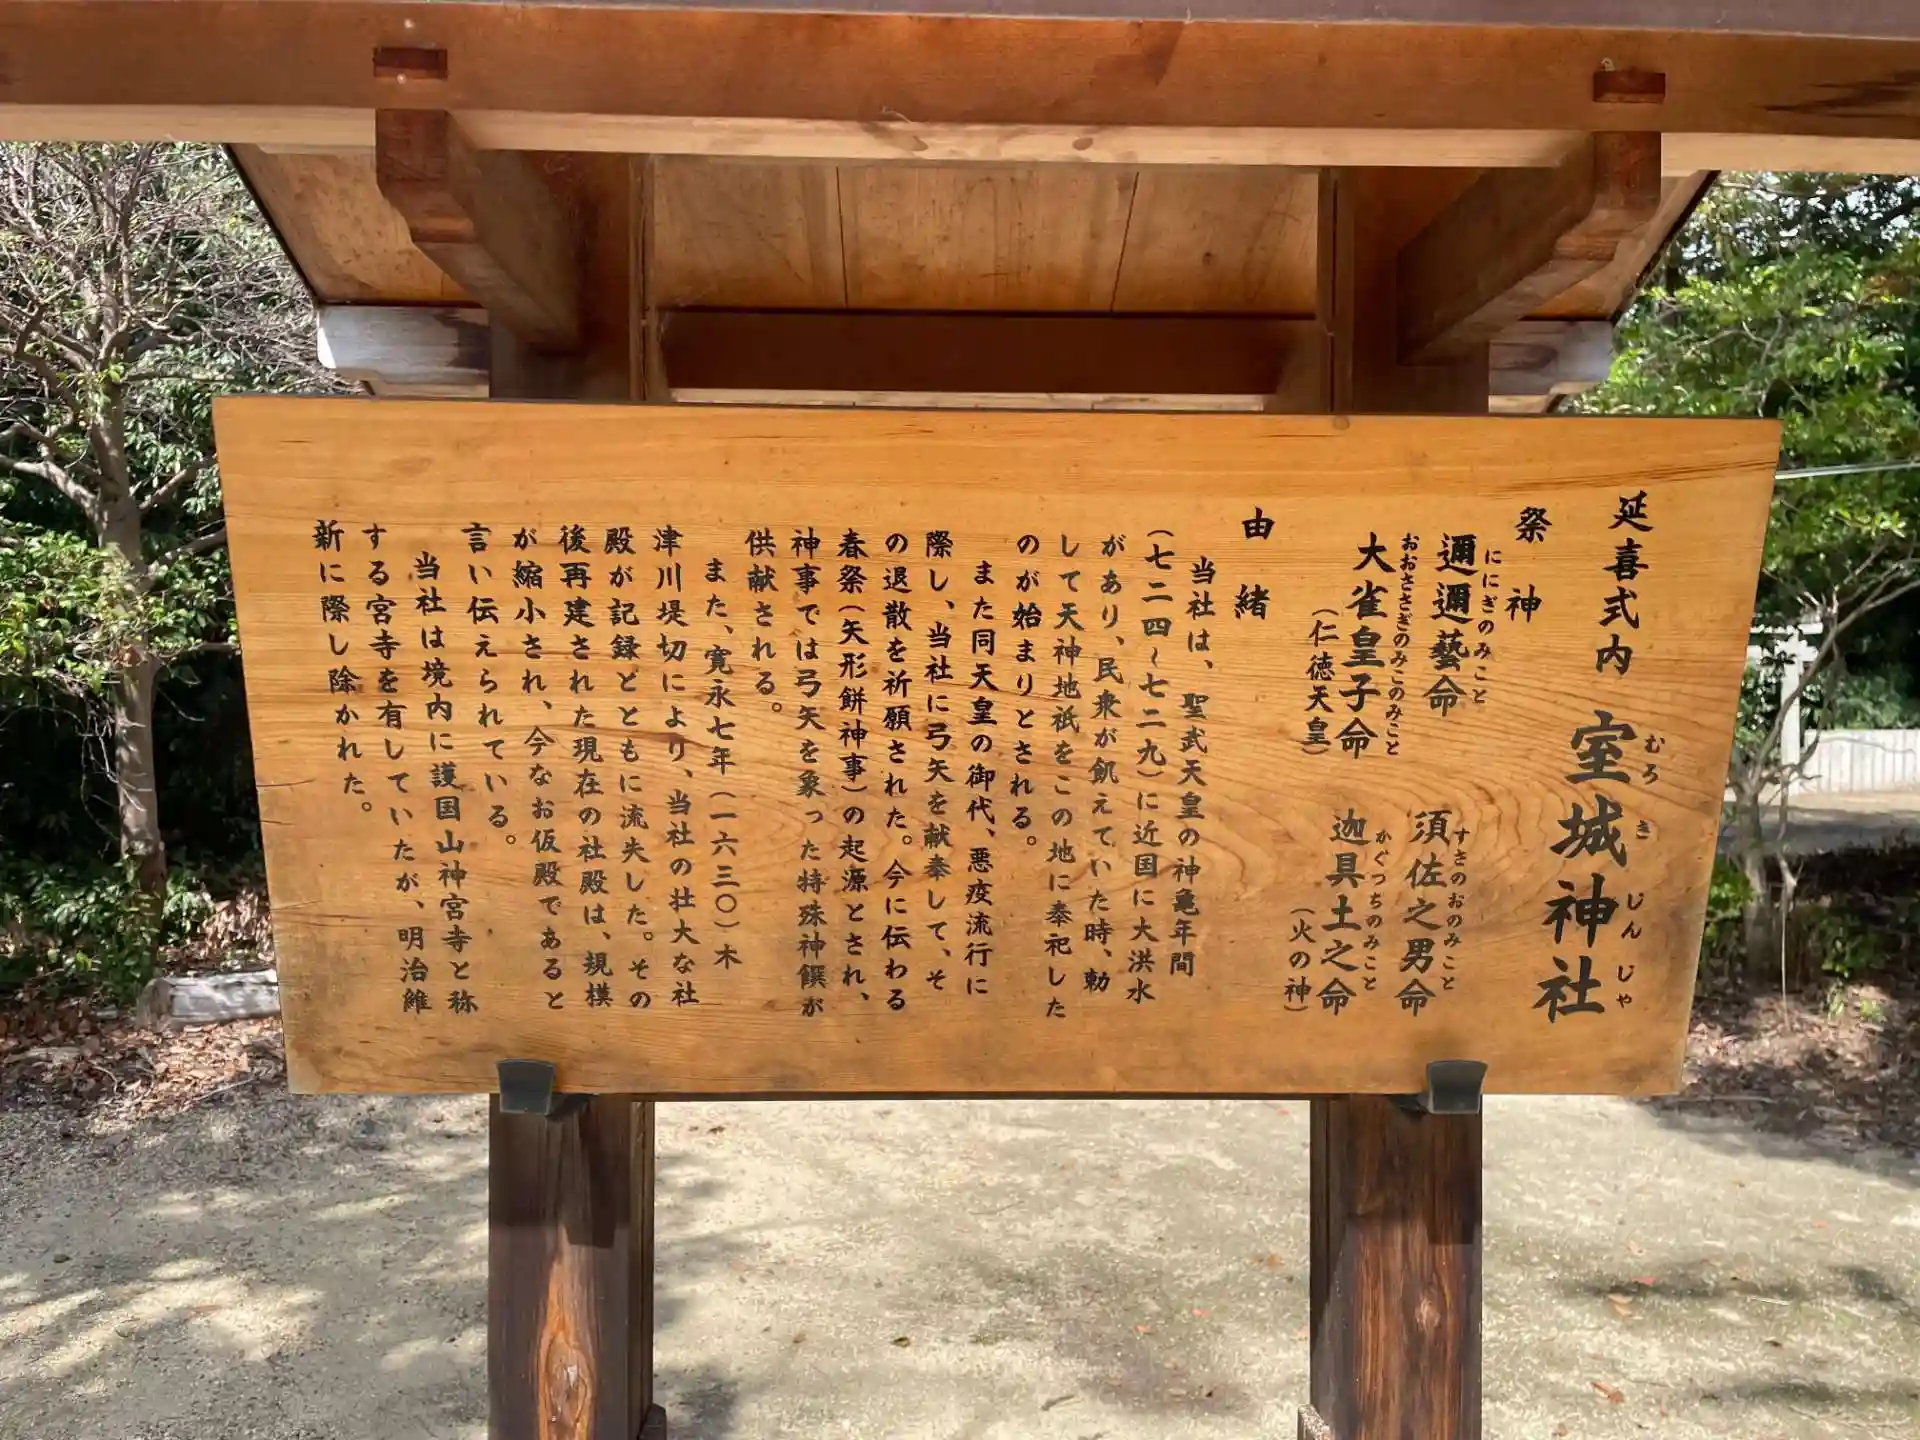 延喜式内 室城神社
むろ き じんじゃ
祭神
邇邇藝命
ににぎのみこと
須佐之男命
すさのおのみこと
大雀皇子命
おおささぎのみこのみこと
(仁徳天皇)
迦具土之命
かぐつちのみこと
(火の神)
由緒
当社は、聖武天皇の神亀年間
(七二四~七二九)に近国に大洪水
があり、民衆が飢えていた時、勅
して天神地祇をこの地に奉祀した
のが始まりとされる。
また同天皇の御代、悪疫流行に
際し、当社に弓矢を献奉して、そ
の退散を祈願された。今に伝わる
春祭(矢形餅神事)の起源とされ、
神事では弓矢を象った特殊神饌が
供献される。
また、寛永七年(一六三〇)木
津川堤切により、当社の壮大な社
殿が記録とともに流失した。その
後再建された現在の社殿は、規模
が縮小され、今なお仮殿であると
言い伝えられている。
当社は境内に護国山神宮寺と称
する宮寺を有していたが、明治維
新に際し除かれた。